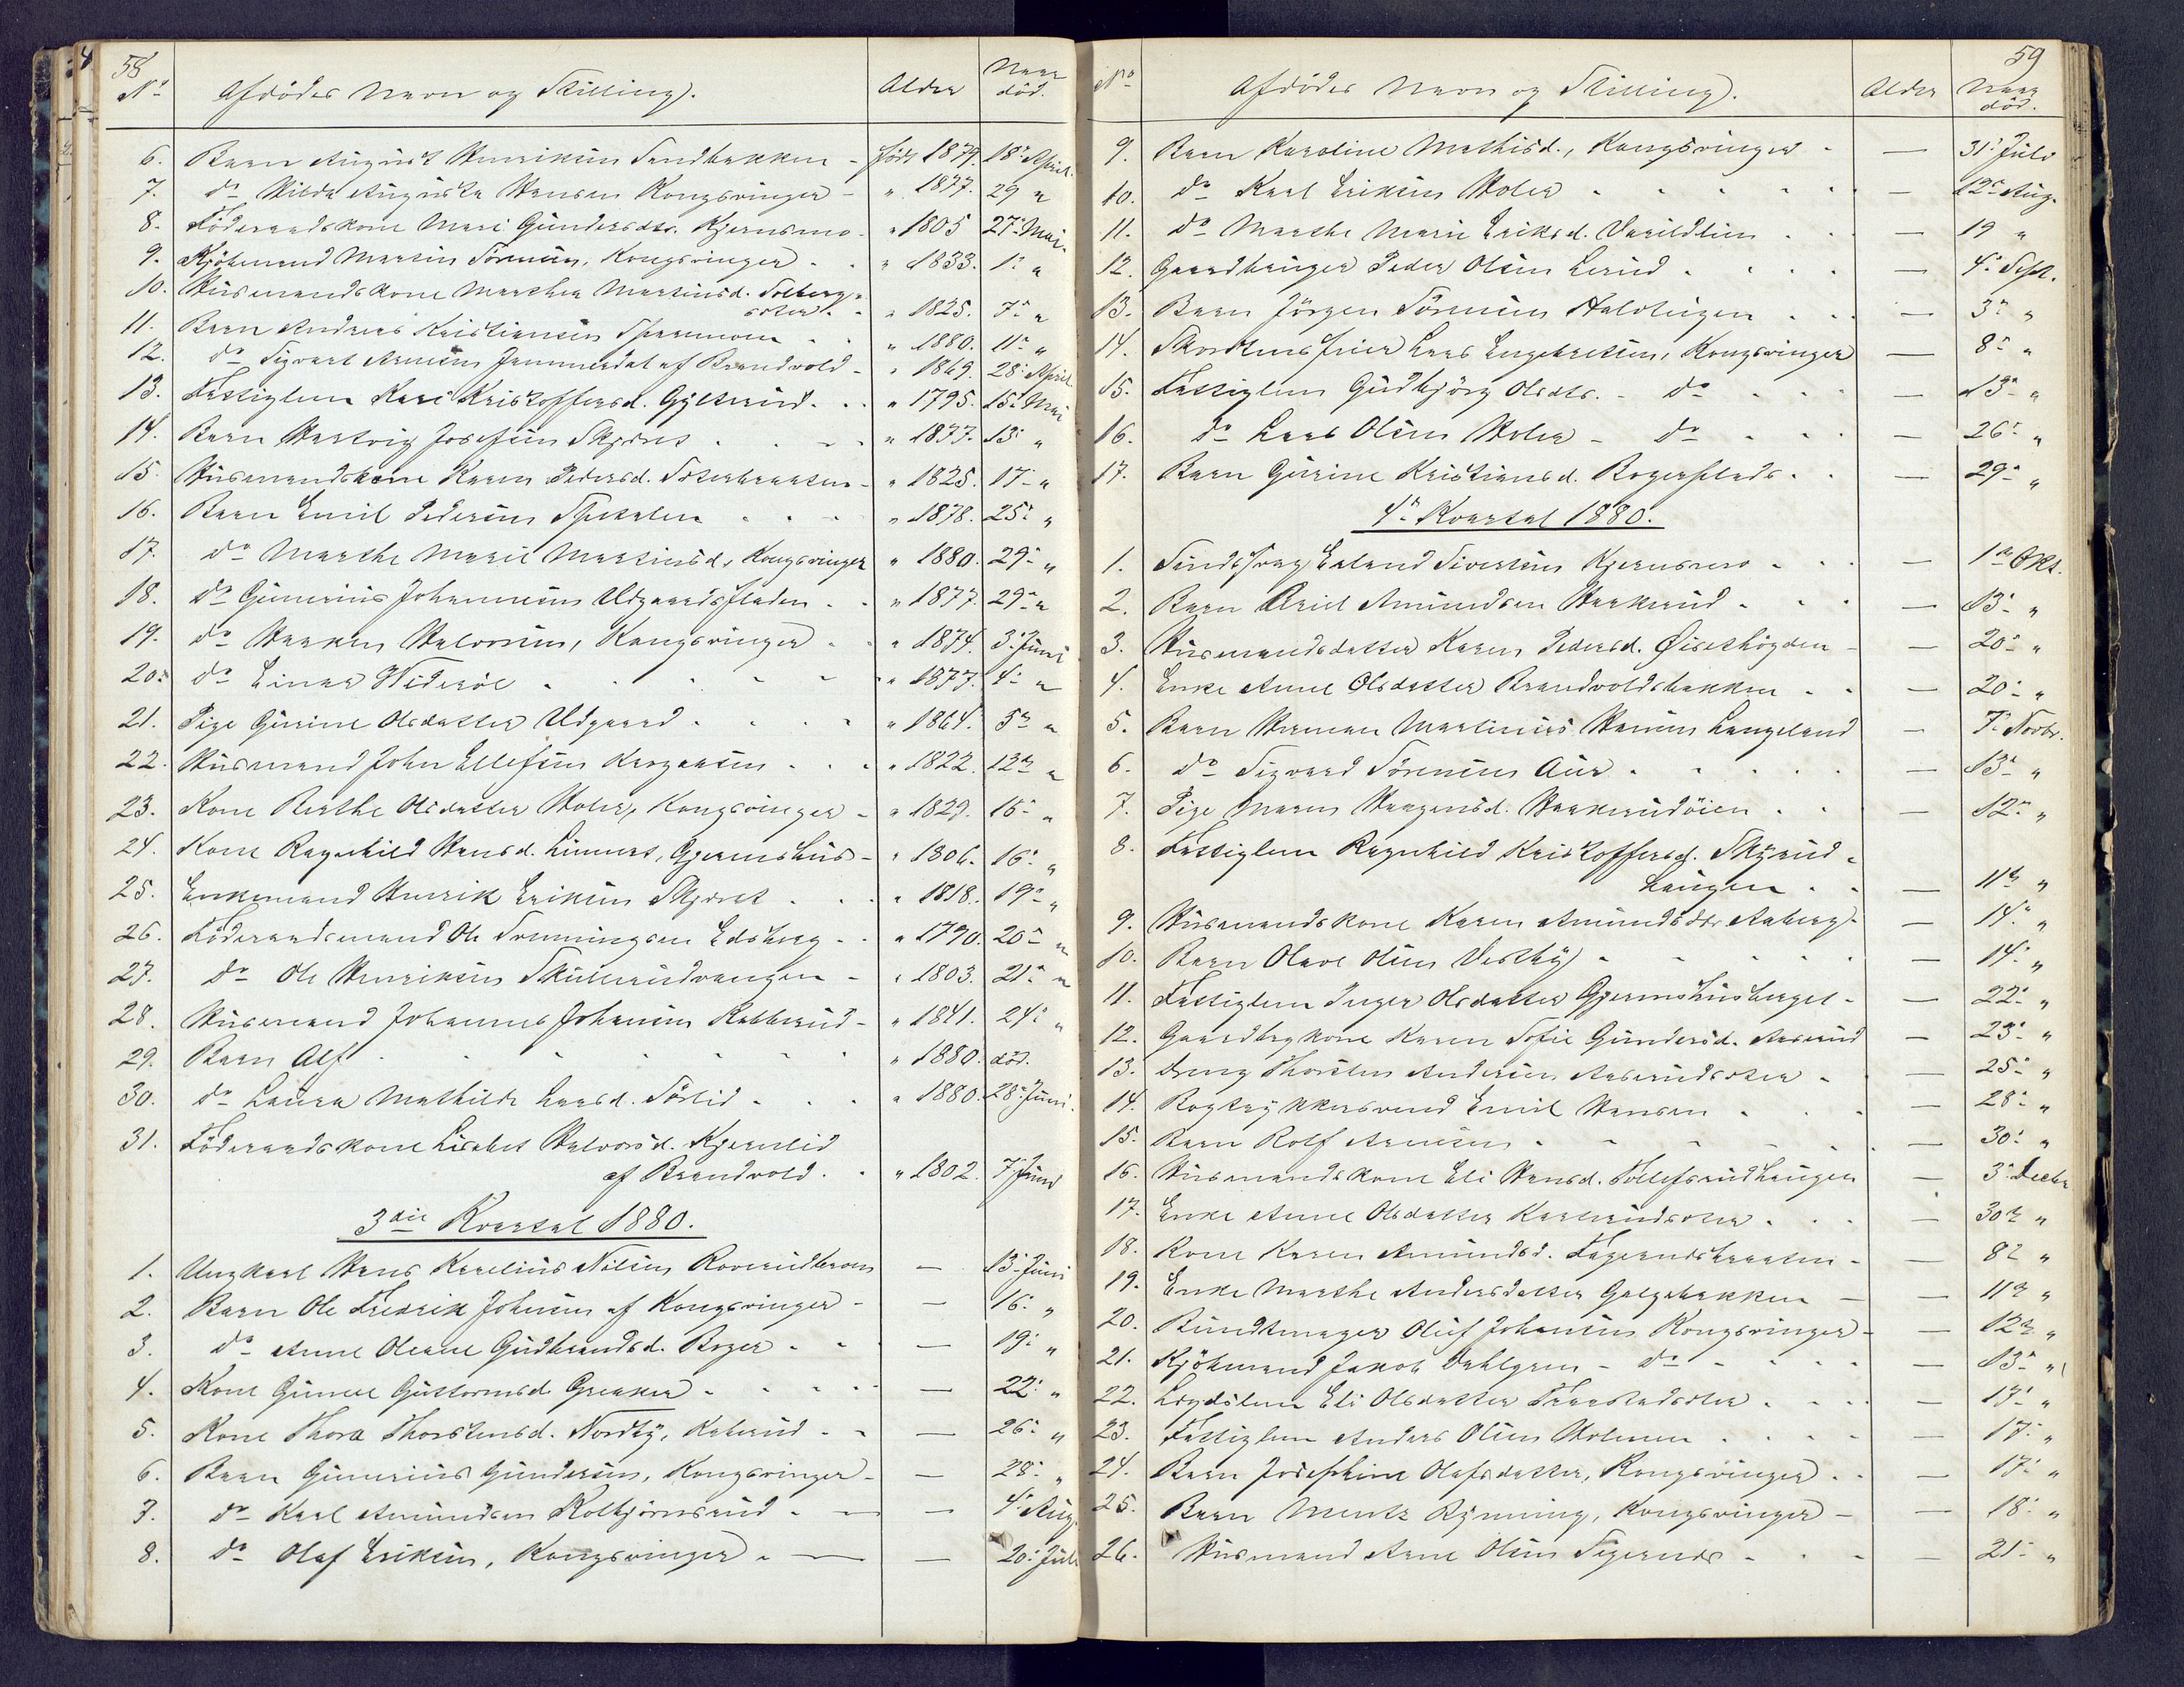 58
No Afdödes Navn og Stilling. Alder Naar död.
6. Barn August Henriksen Sandbakken - født 1879. 18. April.
7. do Hilda Augusta Hansen Kongsvinger - " 1877. 29 "
8. Föderaadskone Mari Gundersdtr. Kjernsmo - " 1805 27. Mai.
9. Kjöbmand Martin Sörensen, Kongsvinger - " 1833. 1. "
10. Husmandskone Marthea Martinsd. Solberg-
sæter - " 1825. 7. "
11. Barn Andreas Kristiansen - " 1880. 11. "
12. do Sigvart Arnesen Jammerdal af Brandvold - " 1869. 28. April.
13. Fattiglem Kari Kristoffersd. Gyltrud. - " 1795. 15. Mai
14. Barn Hartvig Josefsen - " 1877. 13. "
15. Husmandskone Karen Pedersd. Sæterbraaten - " 1825. 17. "
16. Barn Emil Pedersen Spitalen - " 1878. 25. "
17. do Marthe Marie Martinsd., Kongsvinger " 1880. 29. "
18. do Gunerius Johannesen - " 1877. 29. "
19. do Haaken Halvorsen, Kongsvinger - " 1874. 3. Juni
20. do Einar Wideröe - " 1877. 4. "
21. Pige Gurine Olsdatter Udgaard - " 1864. 5. "
22. Husmand John Ellefsen - " 1822. 12. "
23. Kone Berthe Olsdatter Holer, Kongsvinger - " 1829. 15. "
24. Kone Ragnhild Hansd. Linnes, Gjermshus - " 1806. 16. "
25. Enkemand Henrik Eriksen - " 1818. 19. "
26. Föderaadsmand Ole Edsberg - " 1790. 20. "
27. do Ole Henriksen Skullerudvangen - " 1803. 21. "
28. Husmand Johannes Johansen - " 1841. 24. "
29. Barn Alf - " 1880. död.
30. do Laura Mathilde Larsd. Sörlid - " 1880. 28. Juni.
31. Föderaadskone Lisabet Halvorsd. Kjernlid
af Brandvold. - " 1802. 7. Juni
3die Kvartal 1880.
1. Ungkarl Hans Karelius Nilsen - 13. Juni
2. Barn Ole Fredrik Johnsen af Kongsvinger - 16. "
3. do Anne Oleane Gudbrandsd. Roger - 19. "
4. Kone Gunell Guttormsd. Greaker - 22. "
5. Kone Thora Thorstensd. Nordby, - 26. "
6. Barn Gunerius Gundersen, Kongsvinger - 28. "
7. do Karl Amundsen Kolbjörnsrud - 4. Aug.
8. do Olaf Eriksen, Kongsvinger - 20. Juli
59
No Afdödes Navn og Stilling. Alder Naar död.
9. Barn Karoline Mathisd., Kongsvinger - 31. Juli
10. do Karl Eriksen Holer - 12. Aug.
11. do Marthe Marie Eriksd. Varildlien - 19 "
12. Gaardbruger Peder Olsen Lerud - 4. Sept.
13. Barn Jörgen Sörensen - 3. "
14. Skorstensfeier Lars Engebretsen, Kongsvinger - 8. "
15. Fattiglem Gudbjörg Olsdtr. - do - 13. "
16. do Lars Olsen Holer - do - 26. "
17. Barn Gurine Kristiansd. Rogerplads - 29. "
4. Kvartal 1880.
1. Erland Sivertsen Kjernsmo - 1. Okt.
2. Barn Amundsen Haakerud - 13. "
3. Husmandsdatter Karen Pedersd. Öisethögden - 20. "
4. Enke Anne Olsdatter Brandvoldsbakken - 20. "
5. Barn Herman Martinius Hansen Langeland - 7. Novbr.
6. do Sigvard Sörensen Aur - 13. "
7. Pige Maren Haagensd. Haakerudöien - 12. "
8. Fattiglem Ragnhild Kristoffersd. Skyrud-
haugen - 11. "
9. Husmandskone Karen Amundsdtr. Aaberg - 14. "
10. Barn Olave Olsen Vestby - 14. "
11. Fattiglem Inger Olsdatter Gjermshusberget - 22. "
12. Gaardbrgkone Karen Sofie Gundersd. Aaserud - 23. "
13. Dreng Thorsten Andersen Aaserudsæter - 25. "
14. Bogtrykkersvend Emil Hansen - 28. "
15. Barn Rolf Arnesen - 30. "
16. Husmandskone Eli Hansd. Tollefsrudhaugen - 3. Decbr
17. Enke Anne Olsdatter - 30. "
18. Kone Karen Amundsd. - 8. "
19. Enke Marthe Andersdatter Galgebakken - 11. "
20. Buntmager Oluf Johansen Kongsvinger - 12. "
21. Kjöbmand Jakob Dahlgren - do - 13. "
22. Lægdslem Eli Olsdatter - 17. "
23. Fattiglem Anders Olsen Holmen - 17. "
24. Barn Josephine Olafsdatter, Kongsvinger - 17. "
25. Barn Mentz Rynning, Kongsvinger - 18. "
26. Husmand Arne Olsen Sigernes - 21. "